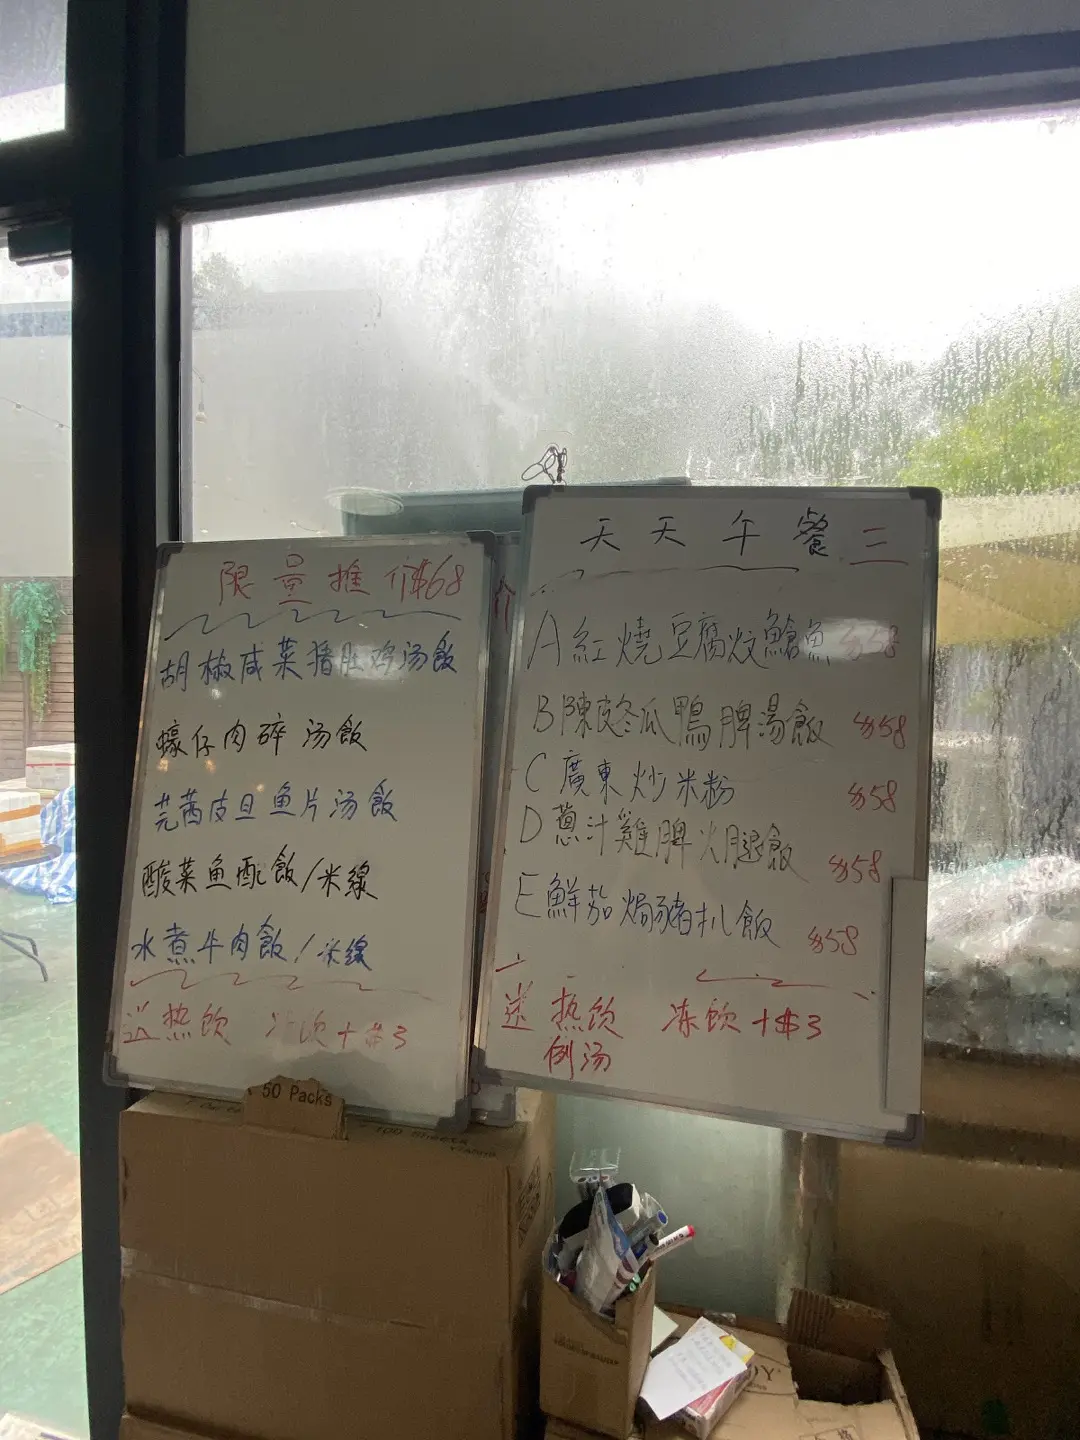 限量推介$68
胡椒咸菜猪肚鸡汤飯
蠔仔肉碎汤飯
芫茜皮旦鱼片汤飯
酸菜鱼配飯/米線
水煮牛肉飯/米線
送热饮 冻饮+$3
50 Packs
介
天天午餐 三
A紅燒豆腐炆鯧魚 $58
B陳皮冬瓜鴨脾湯飯 $58
C廣東炒米粉 $58
D蔥汁雞脾火腿飯 $58
E鮮茄焗豬扒飯 $58
送热饮 冻饮+$3
例汤